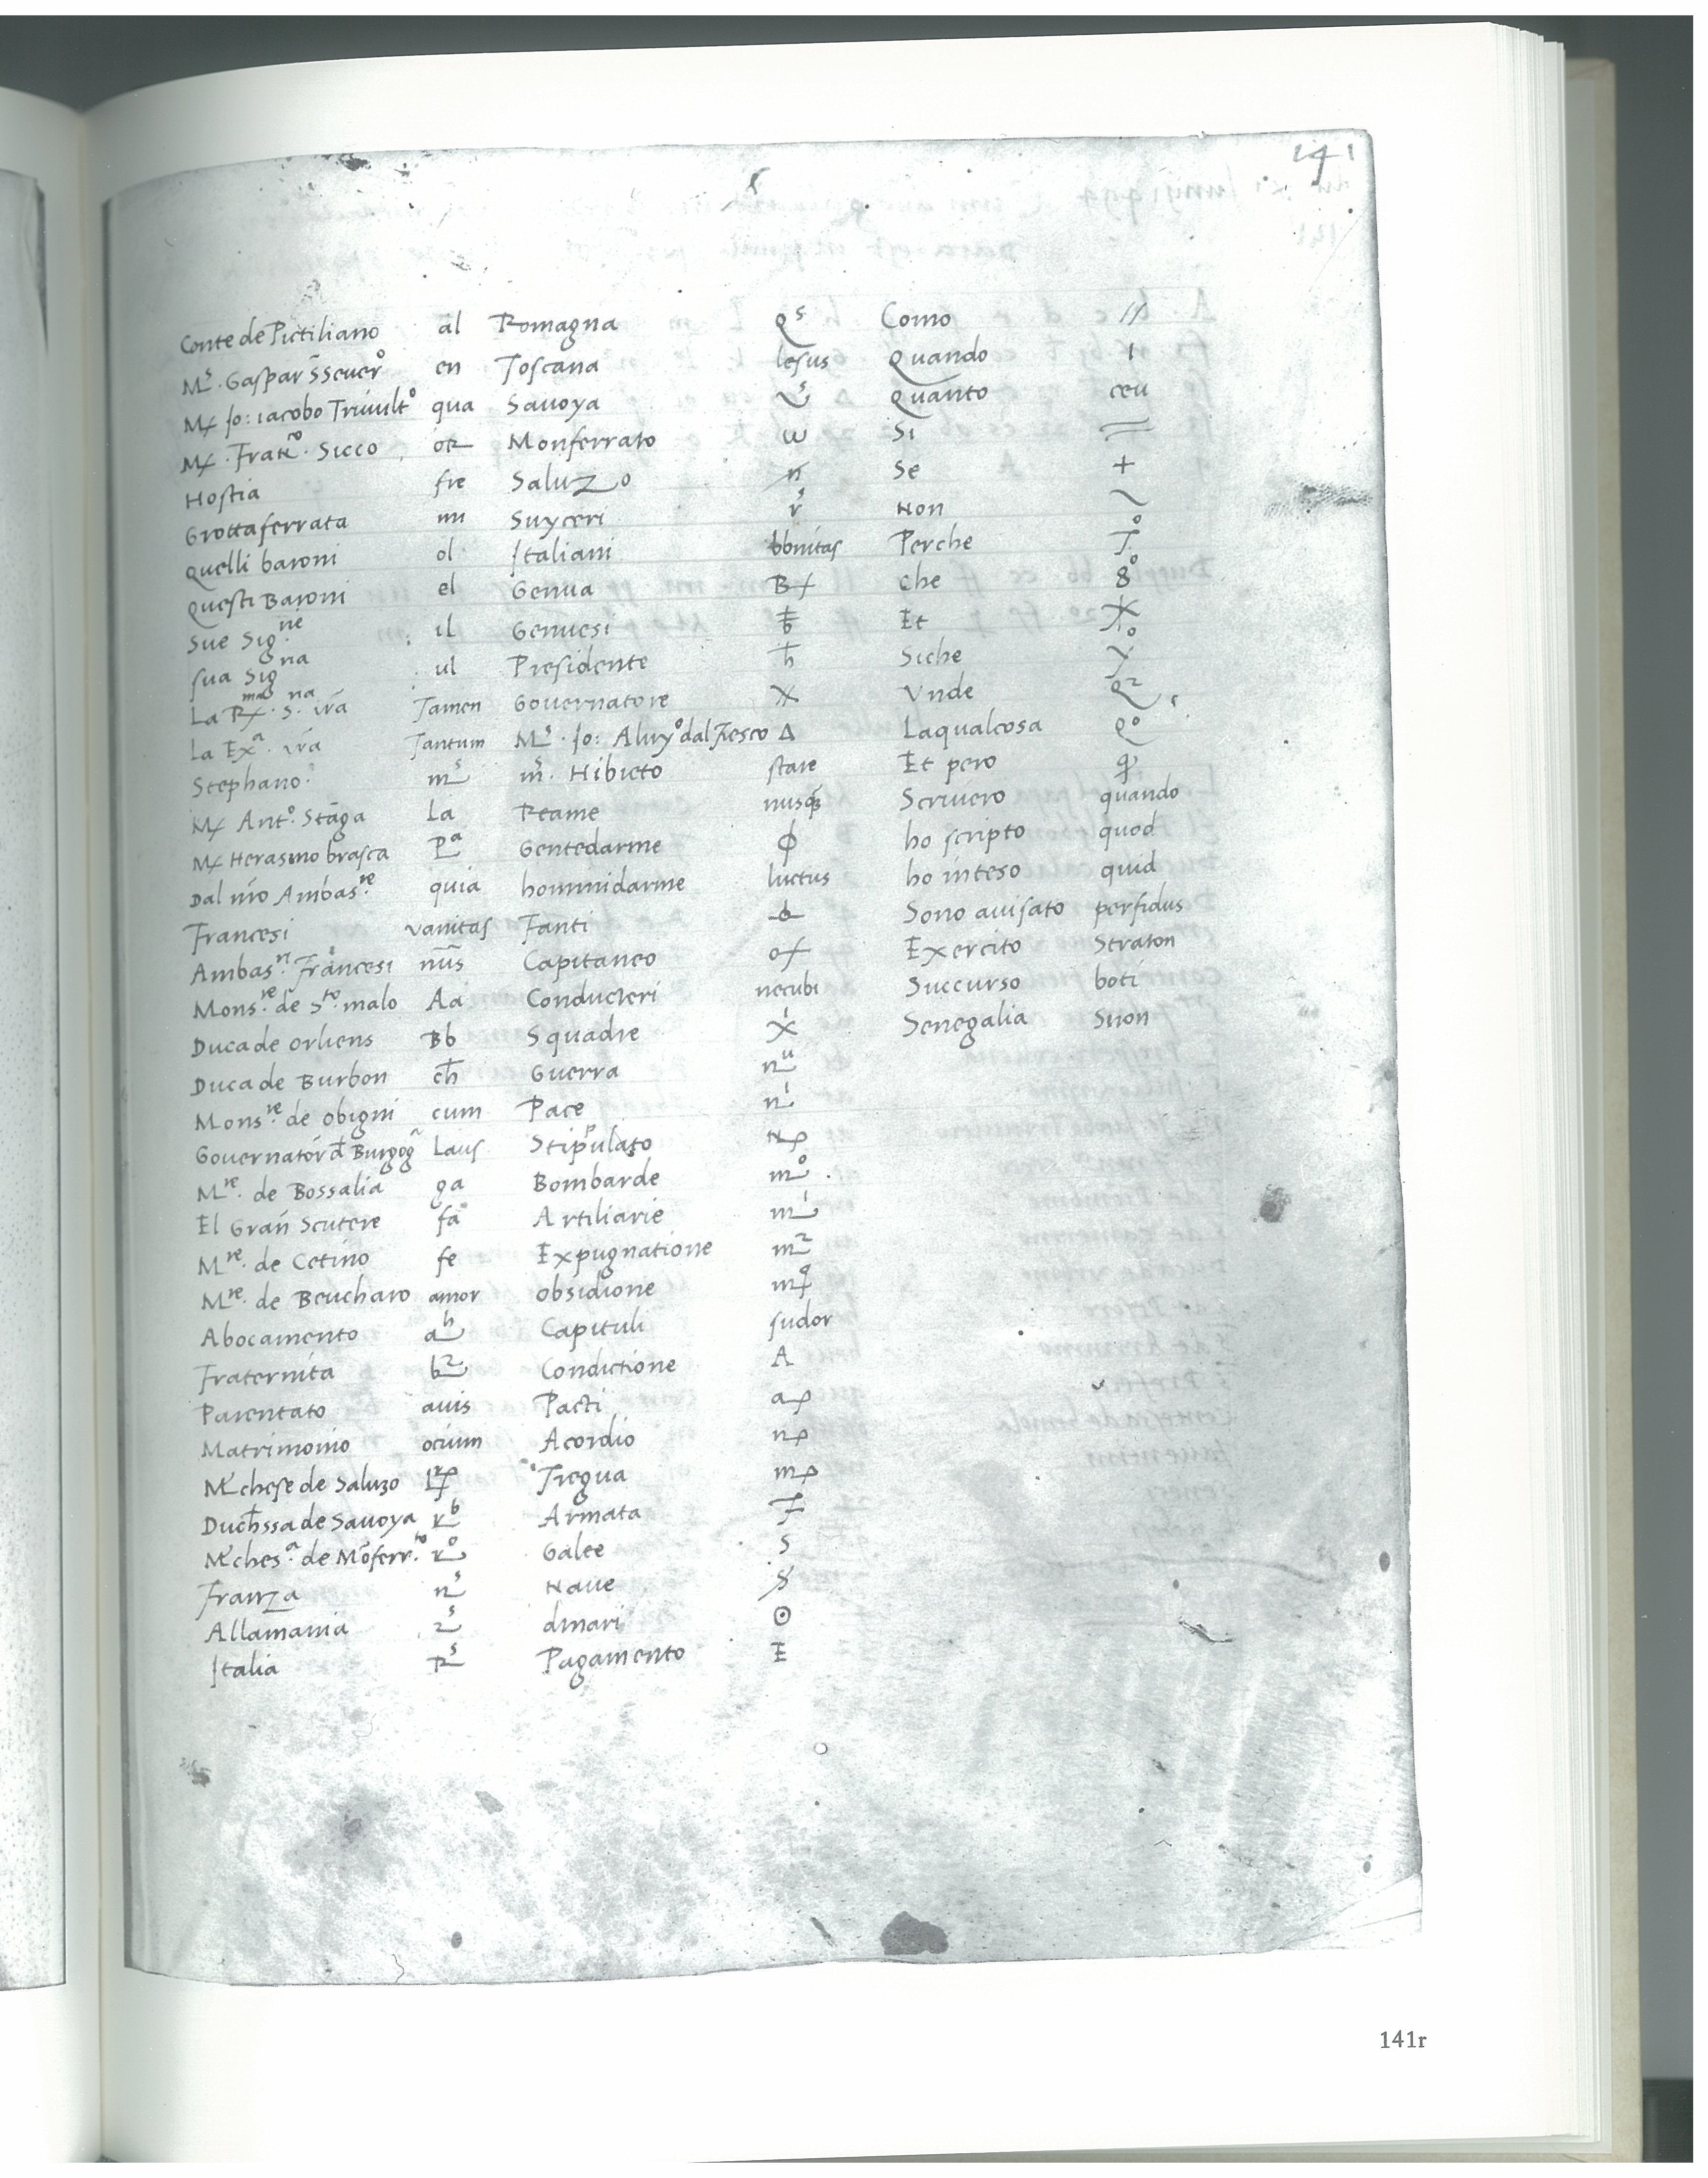 141
Conte de Pictiliano al Romagna Qˢ Como //
Mˢ. Gaspar S̃Seuerº en Toscana Iesus Quando ı
Mʳ Jo: iacobo Triuultº qua Sauoya Quanto ceu
Mʳ. Fratᵉ. Sicco or Monferrato ω Si =
Hostia fre Saluzo n Se +
Grottaferrata mi Suyceri rˢ Non ~
Quelli baroni ol Italiani bbnitas Perche Tº
Questi Baroni el Genua B Che 8º
Sue Sig.ⁿᵉ il Genuesi Et
sua Sigⁿᵃ ul Presidente ħ Siche
La S. vr̃a Tamen Gouernatore X Vnde Q²
La Exᵃ. vr̃a Tantum Mˢ. Jo: Aluyº dal Fiesco Δ Laqualcosa Qº
Stephano mˢ m̃. Hibieto stare Et pero
Antº. Stãga La Reame nusq̃ Scriuero quando
Herasmo brasca Pᵃ Gentedarme ϕ ho scripto quod
Dal nr̃o Ambas.ʳᵉ quia hominidarme luctus ho inteso quid
Francesi vanitas Fanti Sono auisato perfidus
Ambas.ʳⁱ Francesi nũs Capitaneo Exercito Straton
Mons.ʳᵉ de Sᵗᵒ. malo Aa Conducteri necubi Succurso boti
Duca de Orliens Bb Squadre Senegalia Suon
Duca de Burbon ch̃ Guerra nᵘ
Mons.ʳᵉ de Obigni cum Pace nⁱ
Gouernator d Burgog Laus Stipulato
Mʳᵉ. de Bossalia ga Bombarde mº
El Gran Scutere fa Artiliarie mⁱ
Mʳᵉ. de Cetino fe Expugnatione m²
Mʳᵉ. de Beucharo amor obsidione
Abocamento aʰ Capituli sudor
Fraternita b² Condictione A
Parentato auis Pacti ap
Matrimonio ocium Acordio np
Mchese de Saluzo Tregua mp
Duchssa de Sauoya rᵇ Armata F
Mches.ᵃ de Mõferr.ᵗᵒ rº Galee S
Franza nˢ Naue $
Allamania 2ˢ dinari ⊙
Italia Rˢ Pagamento E
141r